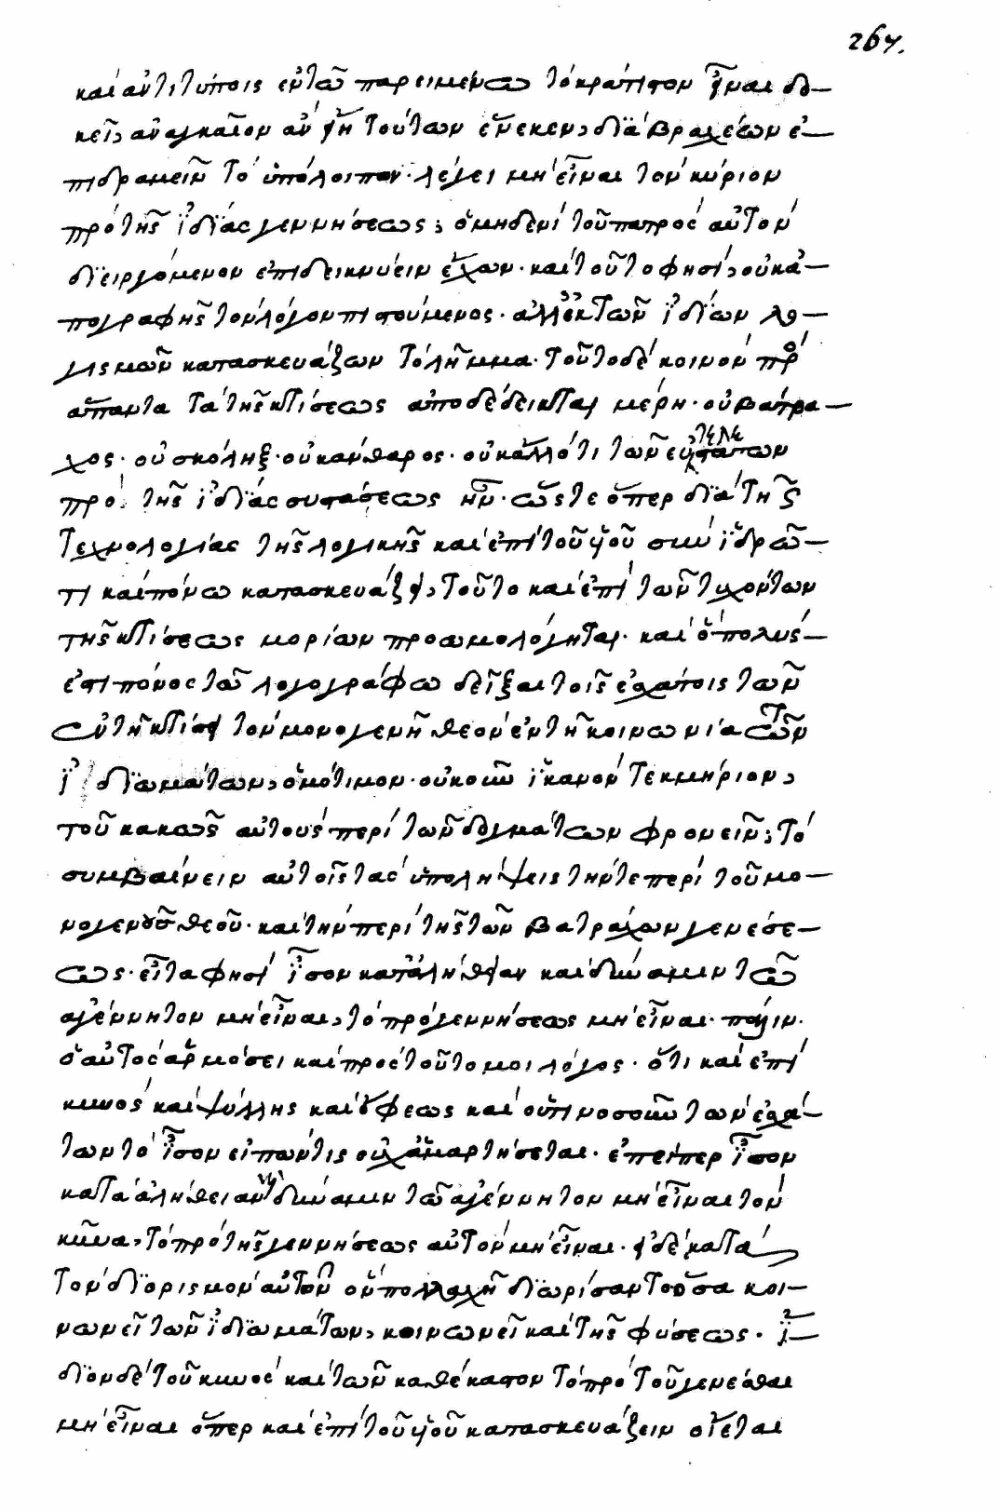 267.
καὶ ἀντιτύποις ἐν τῷ παρειμένῳ τὸ κράτιστον εἶναι δο—
κεῖ, ἀναγκαῖον ἂν εἴη τούτων ἕνεκεν, διὰ βραχέων ἐ—
πιδραμεῖν τὸ ὑπόλοιπον· λέγει μὴ εἶναι τὸν κύριον
πρὸ τῆς ἰδίας γεννήσεως; ὁ μηδενὶ τοῦ πατρὸς αὐτὸν
διειργόμενον ἐπιδεικνύειν ἔχων· καὶ τοῦτο φησὶ, οὐκ ἀ—
πογραφῆς τὸν λόγον πιστούμενος· ἀλλ' ἐκ τῶν ἰδίων λο—
γισμῶν κατασκευάζων τὸ λῆμμα· τοῦτο δὲ κοινὸν πρὸς
ἅπαντα τὰ τῆς κτίσεως ἀποδέδεικται μέρη· οὐ βάτρα—
χος· οὐ σκόληξ· οὐ κάνθαρος· οὐκ ἄλλό τι τῶν εὐτελεστάτων
πρὸ τῆς ἰδίας συστάσεως ἦν· ὥστε ὅπερ διὰ τῆς
τεχνολογίας τῆς λογικῆς καὶ ἐπὶ τοῦ υἱοῦ σὺν ἱδρῶ—
τι καὶ πόνῳ κατασκευάζει, τοῦτο καὶ ἐπὶ τῶν τυχόντων
τῆς κτίσεως μορίων προωμολόγηται· καὶ ὁ πολύς—
ἐστι πόνος τῷ λογογράφῳ δεῖξαι τοῖς ἐσχάτοις τῶν
ἐν τῇ κτίσει τὸν μονογενῆ θεὸν ἐν τῇ κοινωνίᾳ τῶν
ἰδιωμάτων, ὁμότιμον· οὐκοῦν ἱκανὸν τεκμήριον,
τοῦ κακῶς αὐτοὺς περὶ τῶν δογμάτων φρονεῖν; τὸ
συμβαίνειν αὐτοῖς τὰς ὑπολήψεις τήν τε περὶ τοῦ μο—
νογενοῦς θεοῦ· καὶ τὴν περὶ τῆς τῶν βατράχων γενέσε—
ως· εἶτα φησὶ ἴσον κατ' ἀλήθειαν καὶ δύναμιν τῷ
ἀγέννητον μὴ εἶναι, τὸ πρὸ γεννήσεως μὴ εἶναι· πάλιν·
ὁ αὐτὸς ἁρμόσει καὶ πρὸς τοῦτο μοι λόγος· ὅτι καὶ ἐπὶ
κυνὸς καὶ ψύλλης καὶ ὄφεως καὶ οὑτινοσοῦν τῶν ἐσχά—
των τὸ ἴσον εἰπών τις οὐχ ἁμαρτήσεται· ἐπείπερ ἴσον
κατὰ ἀλήθειαν καὶ δύναμιν τῷ ἀγέννητον μὴ εἶναι τὸν
κύνα, τὸ πρὸ τῆς γεννήσεως αὐτὸν μὴ εἶναι· εἰ δὲ κατὰ
τὸν διορισμὸν αὐτῶν ὃν πολλαχῆ διωρίσαντο ὅσα κοι—
νωνεῖ τῶν ἰδιωμάτων, κοινωνεῖ καὶ τῆς φύσεως· ἴ—
διον δὲ τοῦ κυνὸς καὶ τῶν καθέκαστον τὸ πρὸ τοῦ γενέσθαι
μὴ εἶναι ὅπερ καὶ ἐπὶ τοῦ υἱοῦ κατασκευάζειν οἴεται